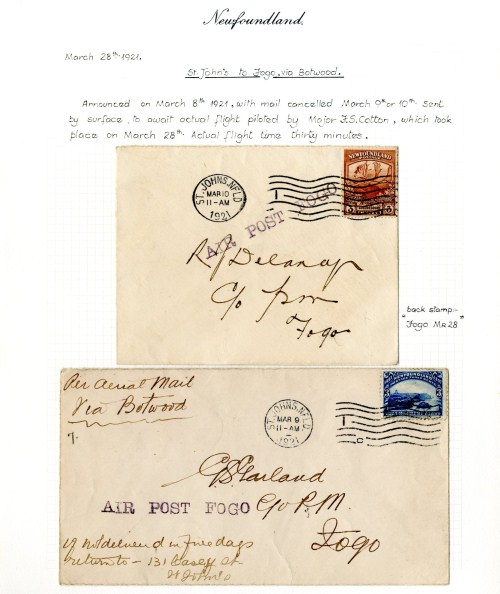 Newfoundland.
March 28th 1921.
St. John's to Fogo, via Botwood.
Announced on March 8th 1921, with mail cancelled March 9th or 10th sent
by surface, to await actual flight piloted by Major F.S. Cotton, which took
place on March 28th. Actual flight time thirty minutes.
ST. JOHN'S, N'F'L'D.
MAR 10
11-AM
1921
NEWFOUNDLAND
AIR POST FOGO
R J Delaney
C/o P.M
Fogo
"back stamp:-
Fogo MR 28"
Per Aerial Mail
Via Botwood
ST. JOHN'S, N'F'L'D.
MAR 9
11-AM
1921
G S Garland
AIR POST FOGO
C/o P.M.
Fogo
if not delivered in five days
return to - 131 Casey St
St John's